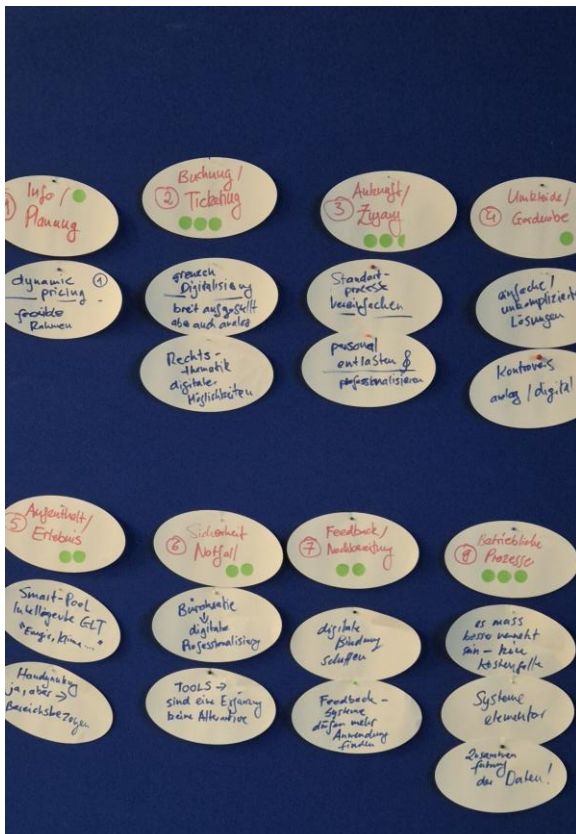 1 Info /
Planung
dynamic 1
pricing
flexible
Rahmen
Buchung /
2 Ticketing
grenzen
Digitalisierung
breit aufgestellt
aber auch analog
Rechts-
thematik
digitaler
Möglichkeiten
Ankunft /
3 Zugang
Standort-
prozesse
vereinfachen
personal
entlasten &
professionalisieren
Umkleide /
4 Garderobe
einfache /
unkomplizierte
Lösungen
Kontrovers
analog / digital
Aufenthalt /
5 Erlebnis
Smart-Pool
Intelligente GLT
"Energie, Klima ..."
Handynutzung
ja, aber →
Bereichsbezogen
Sicherheit
6 Notfall
Bürokratie
↓
digitale
Professionalisierung
TOOLS →
sind eine Ergänzung
keine Alternative
Feedback /
7 Nachbereitung
digitale
Bindung
schaffen
Feedback -
Systeme
dürfen mehr
Anwendung
finden
Betriebliche
8 Prozesse
es muss
besser vernetzt
sein - keine
Kostenfalle
Systeme
elementar
Zusammen
führung
der Daten!